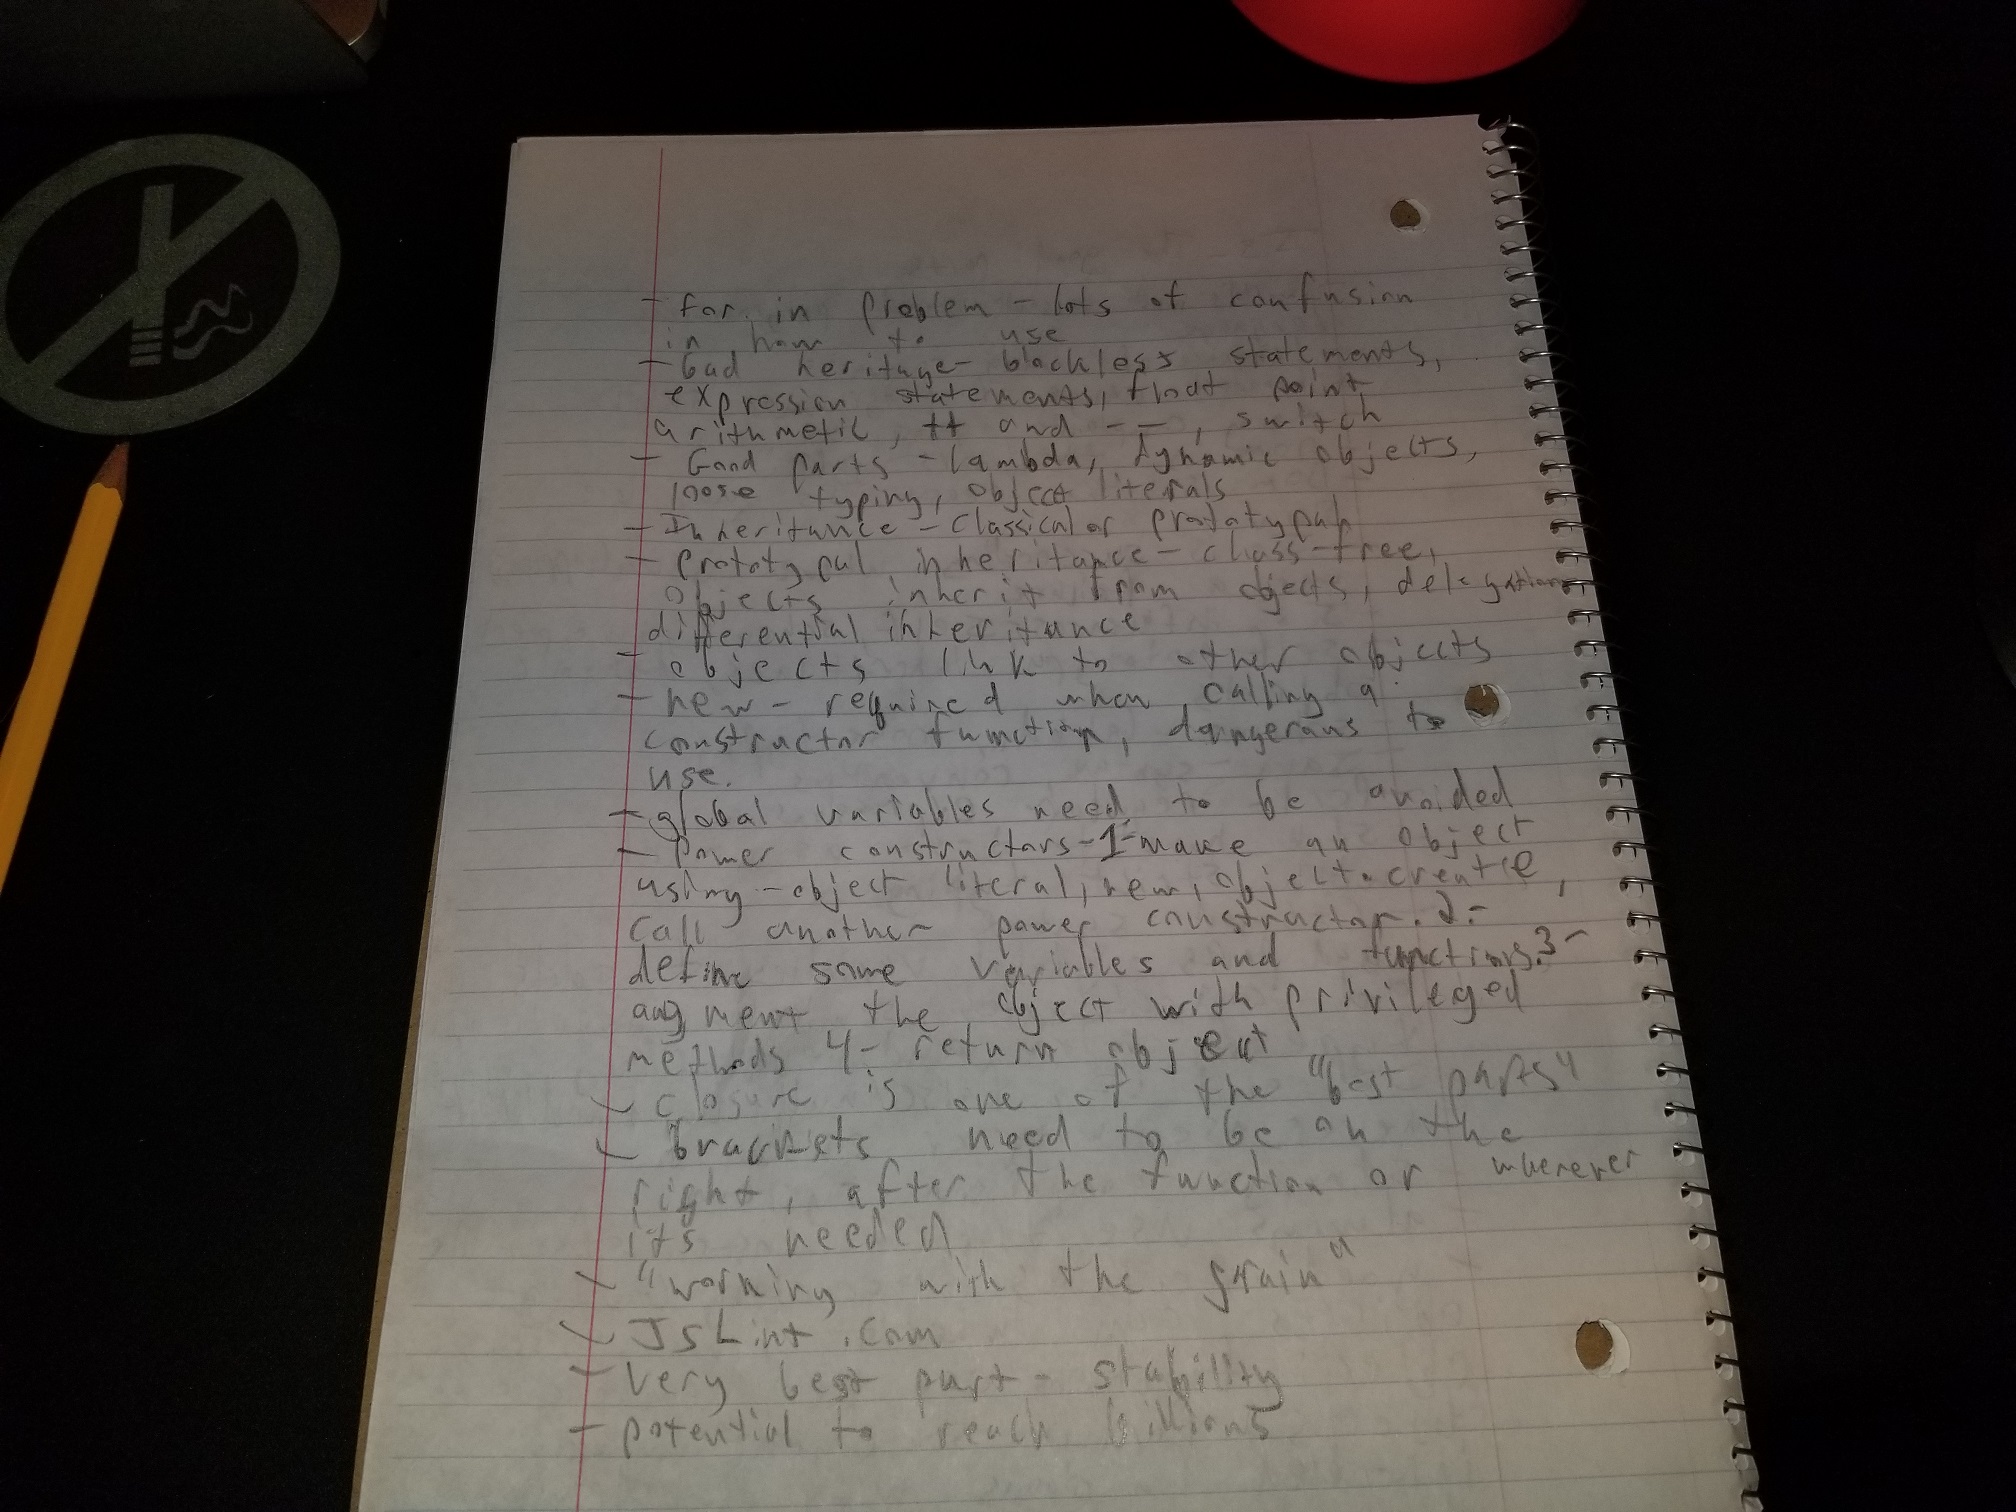 - for in problem - lots of confusion
in how to use
- bad heritage - blockless statements,
expression statements, float point
arithmetic, ++ and --, switch
- Good parts - lambda, dynamic objects,
loose typing, object literals
- Inheritance - classical or prototypal
- prototypal inheritance - class-free,
objects inherit from objects, delegation
differential inheritance
- objects link to other objects
- new - required when calling a
constructor function, dangerous to
use.
- global variables need to be avoided
- Power constructors - 1- make an object
using - object literal, new, object.create,
call another power constructor. 2-
define some variables and functions. 3-
augment the object with privileged
methods 4- return object
- closure is one of the "best parts"
- brackets need to be on the
right, after the function or wherever
its needed
- "working with the grain"
- JSLint.com
- very best part - stability
- potential to reach billions